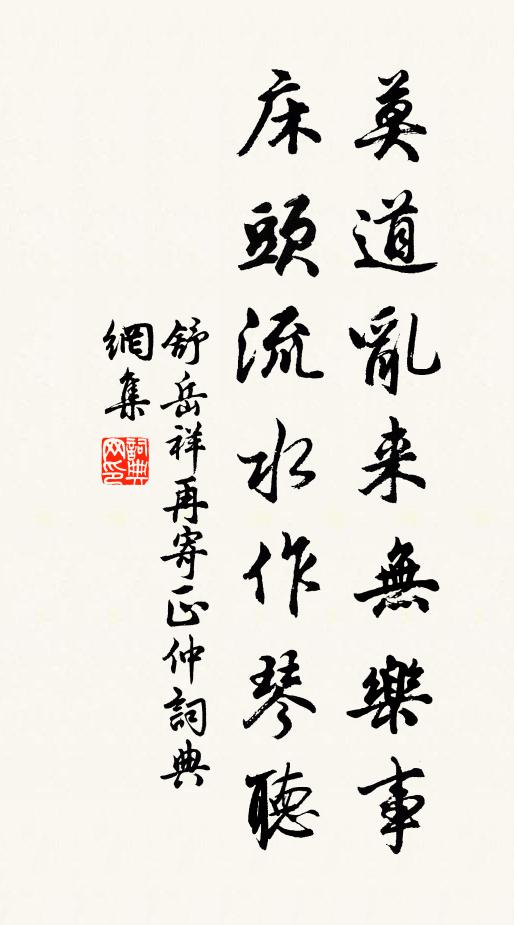 莫道亂来無樂事
床頭流水作琴聴
舒岳祥再寄正仲詞典
網集
詞典網印